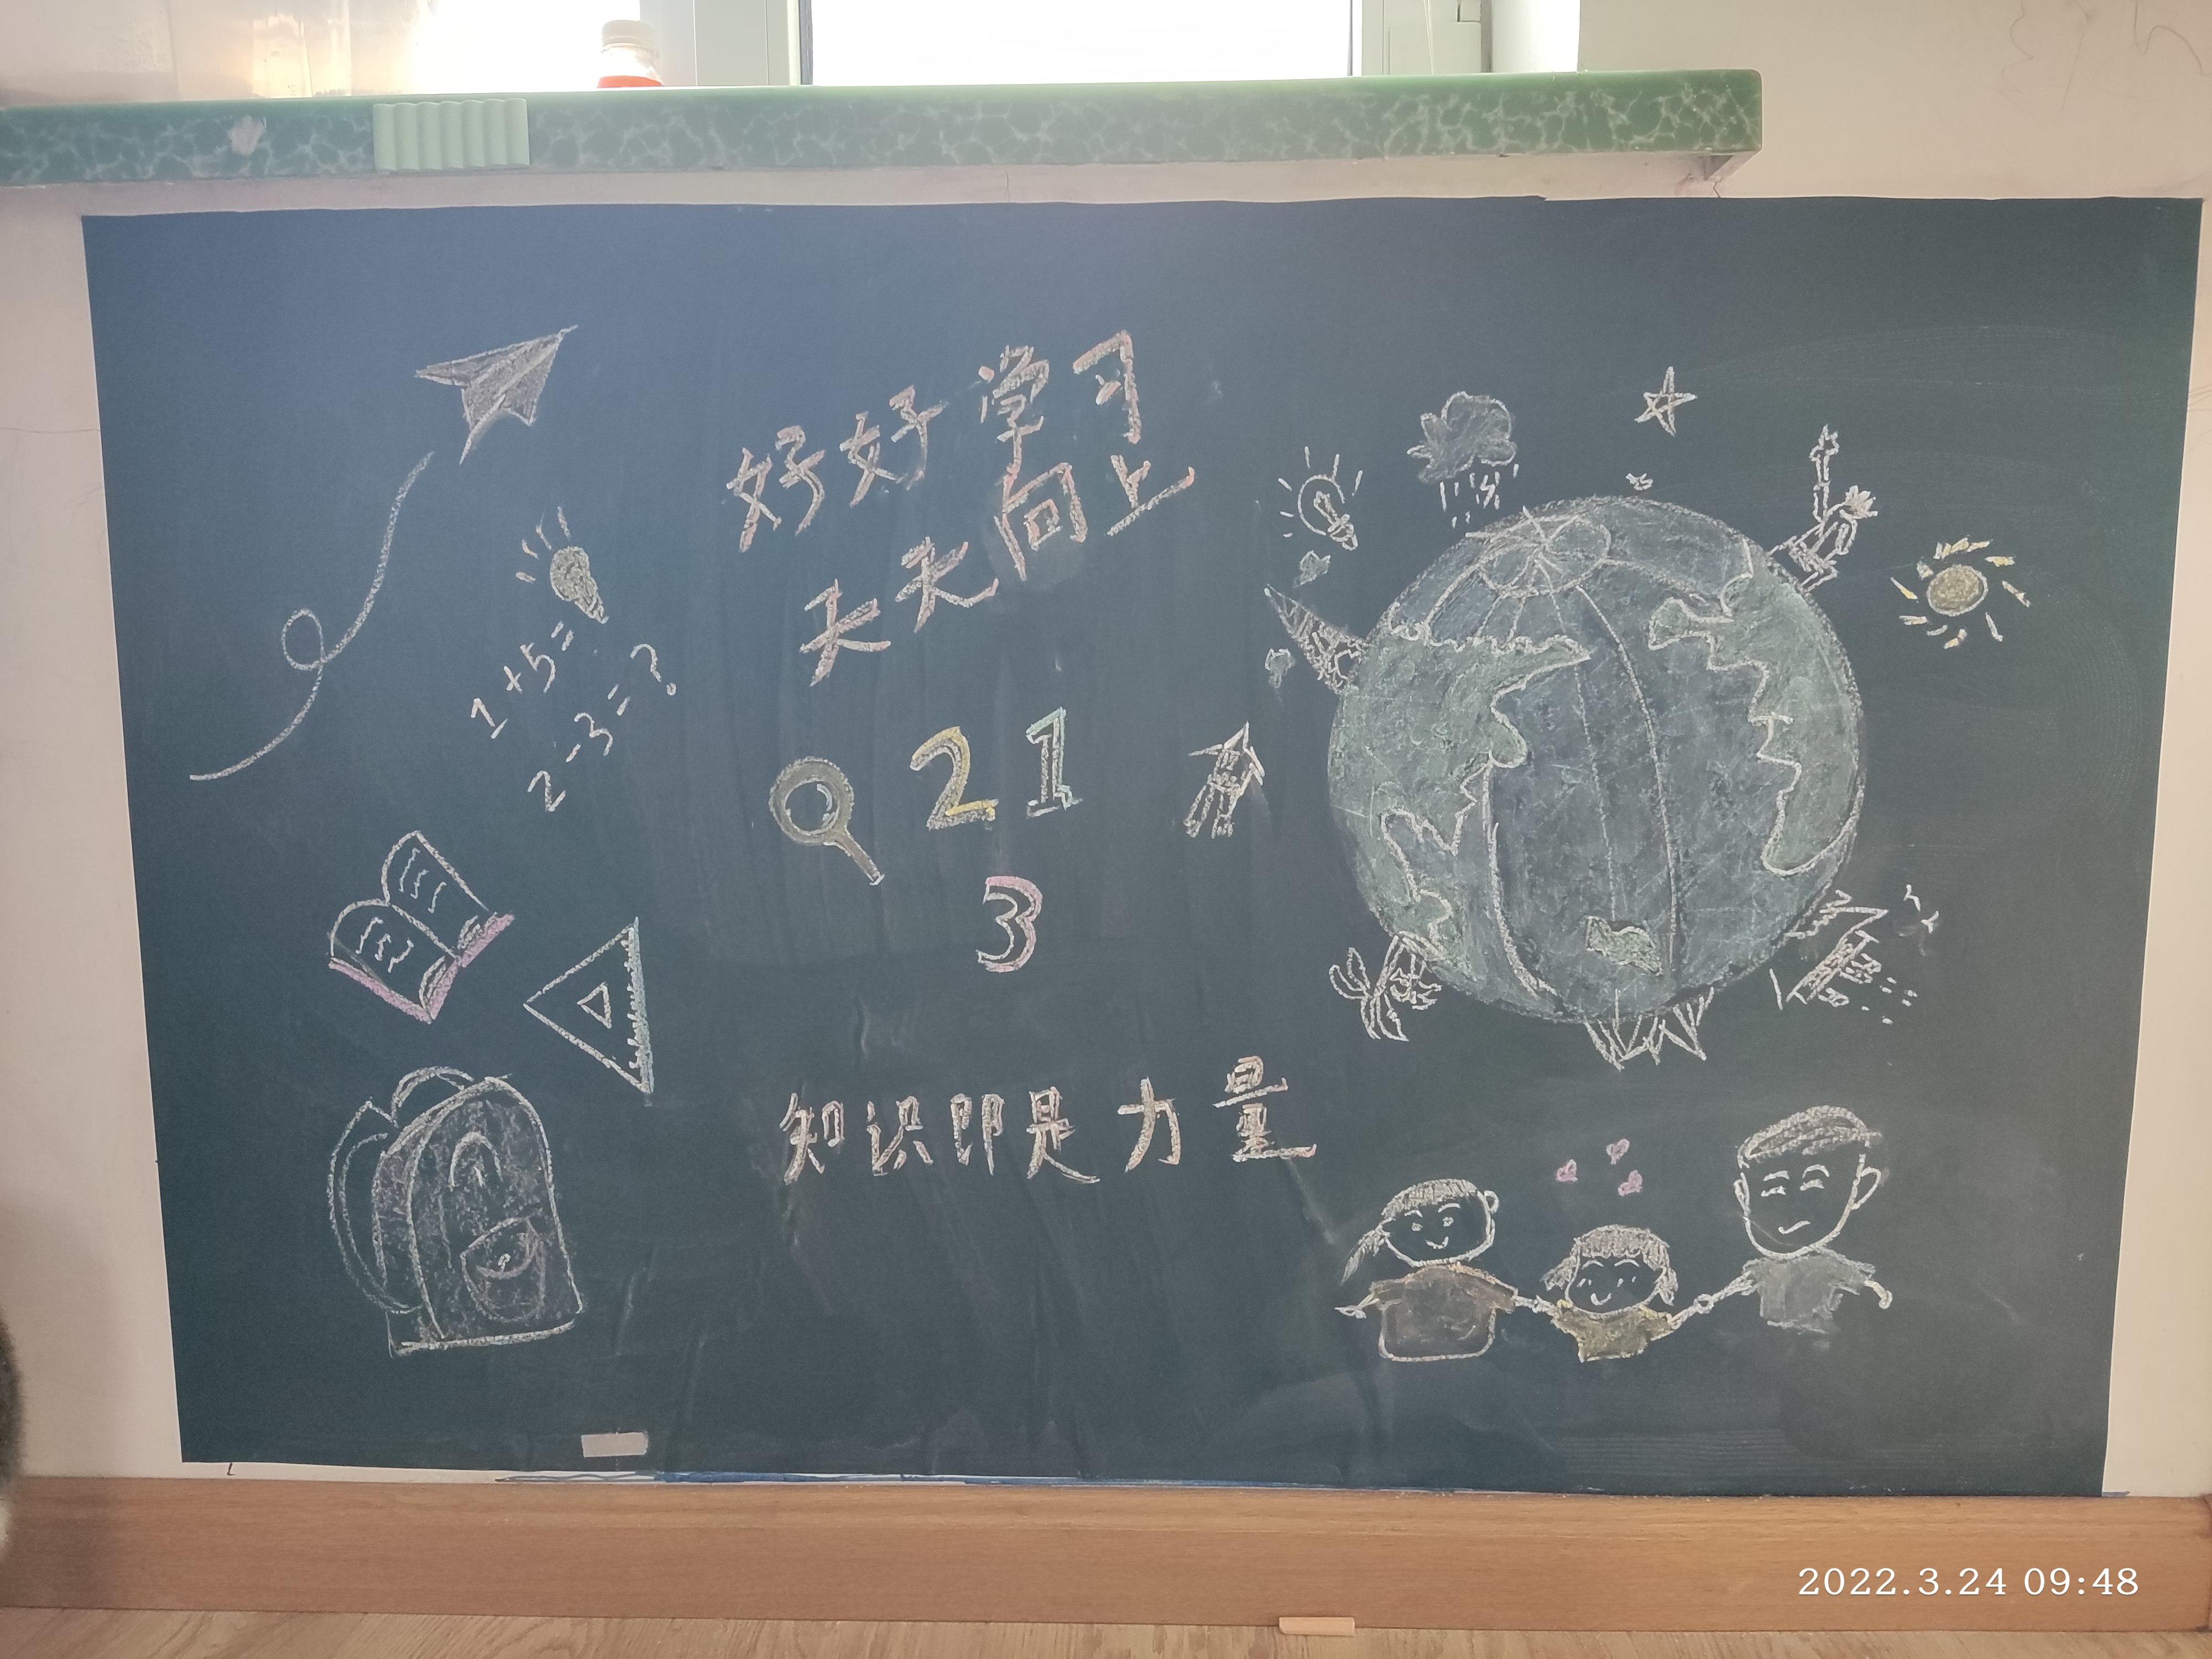 好好学习
天天向上
1+5=
2-3=?
21
3
知识即是力量
2022.3.24 09:48